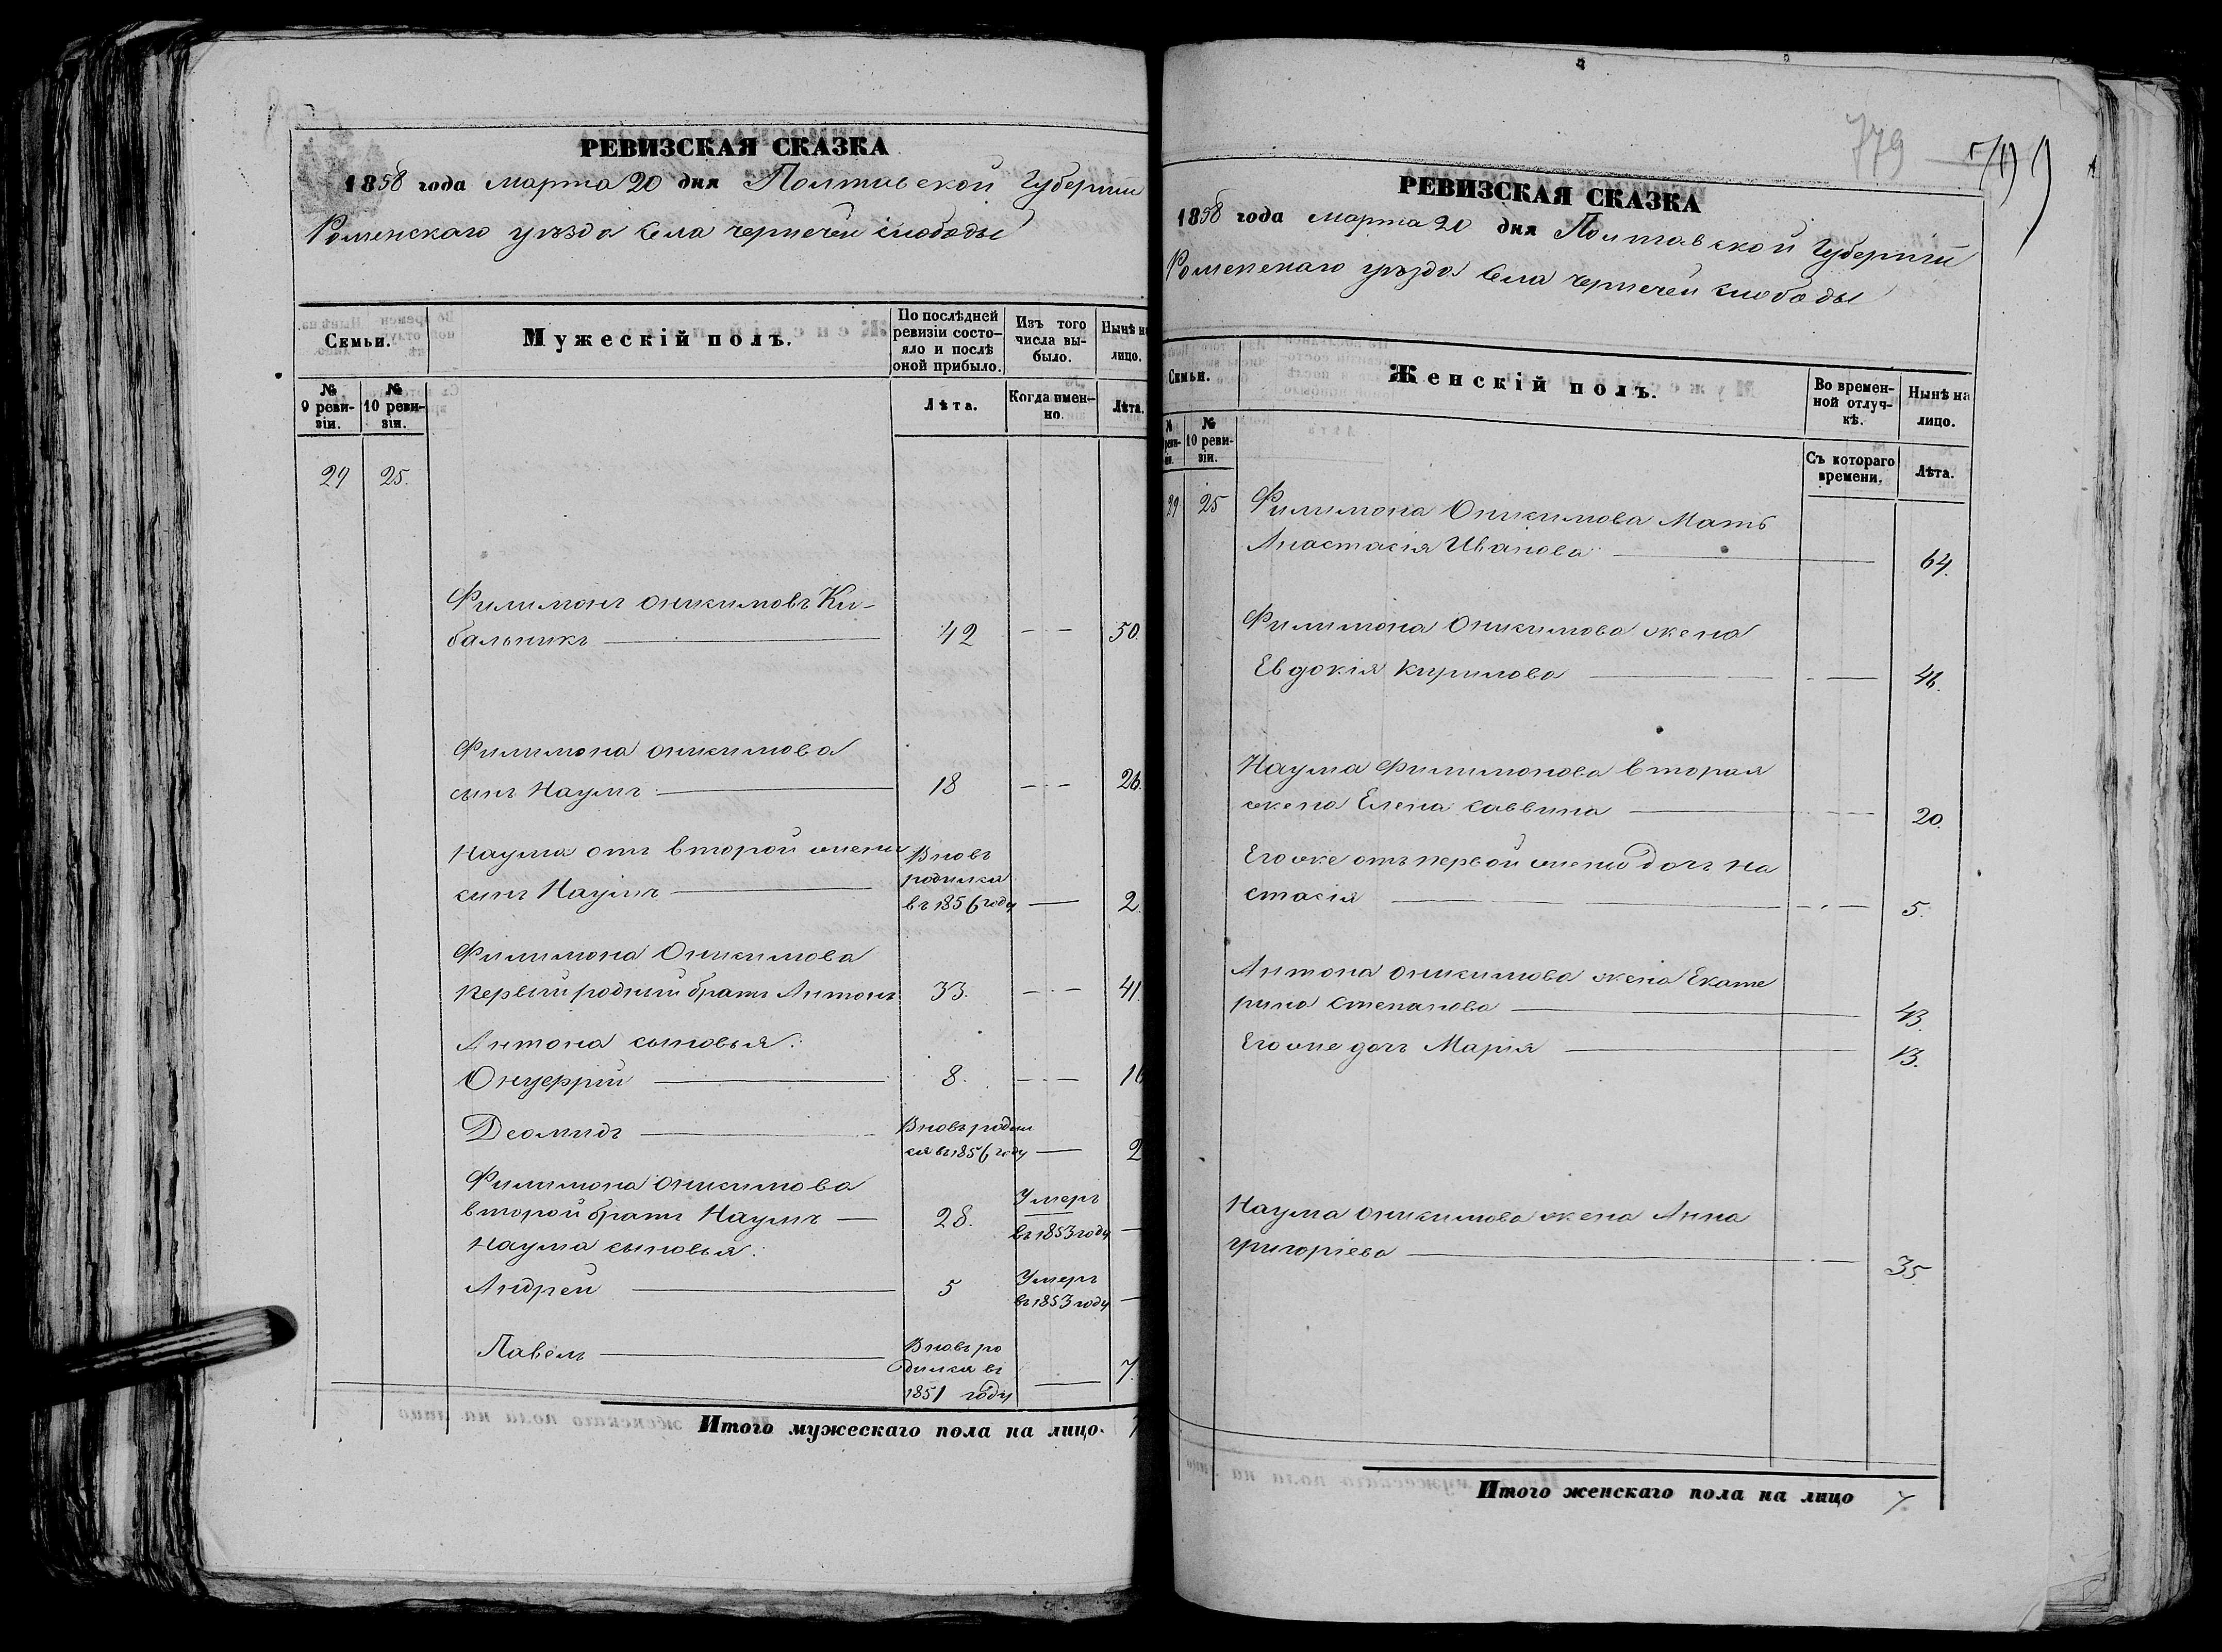 РЕВИЗСКАЯ СКАЗКА
1858 года марта 20 дня Полтавской Губернии
Роменскаго уезда села чернечей слободы
Семьи.
Мужескій полъ.
По послѣдней ревизіи состо-
яло и послѣ оной прибыло.
Изъ того числа вы-
было.
Нынѣ на лицо.
№ 9 реви-
зіи.
№ 10 реви-
зіи.
Лѣта.
Когда имен-
но.
Лѣта.
29 25.
Филимонъ Оникимовъ Ки-
бальникъ 42 50.
Филимона Оникимова
сынъ Наумъ 18 26.
Наума отъ второй жены
сынъ Наумъ
Вновь
родился
въ 1856 году 2.
Филимона Оникимова
первый родный братъ Антонъ 33. 41.
Антона сыновья:
Онуфрій 8. 16
Деомидъ
Вновь родил
ся въ 1856 году 2
Филимона Оникимова
второй братъ Наумъ 28.
Умеръ
въ 1853 году
Наума сыновья:
Андрей 5
Умеръ
въ 1853 году
Павелъ
Вновь ро
дился въ
1851 году 7.
Итого мужескаго пола на лицо. 7
779
РЕВИЗСКАЯ СКАЗКА
1858 года марта 20 дня Полтавской Губерніи
Роменскаго уезда села чернечей слободы
Семьи.
Женскій полъ.
Во времен-
ной отлуч-
кѣ.
Нынѣ на лицо.
№ реви-
зіи.
№ 10 реви-
зіи.
Съ котораго времени.
Лѣта.
29 25
Филимона Оникимова Мать
Анастасія Иванова 64.
Филимона Оникимова жена
Евдокія Кирилова 46.
Наума Филимонова вторая
жена Елена Саввина 20.
Его же отъ первой жены дочь На
стасія 5.
Антона Оникимова жена Екате
рина Степанова 43.
Его же дочь Марія 13.
Наума Оникимова жена Анна
Григоріева 35
Итого женскаго пола на лицо 7